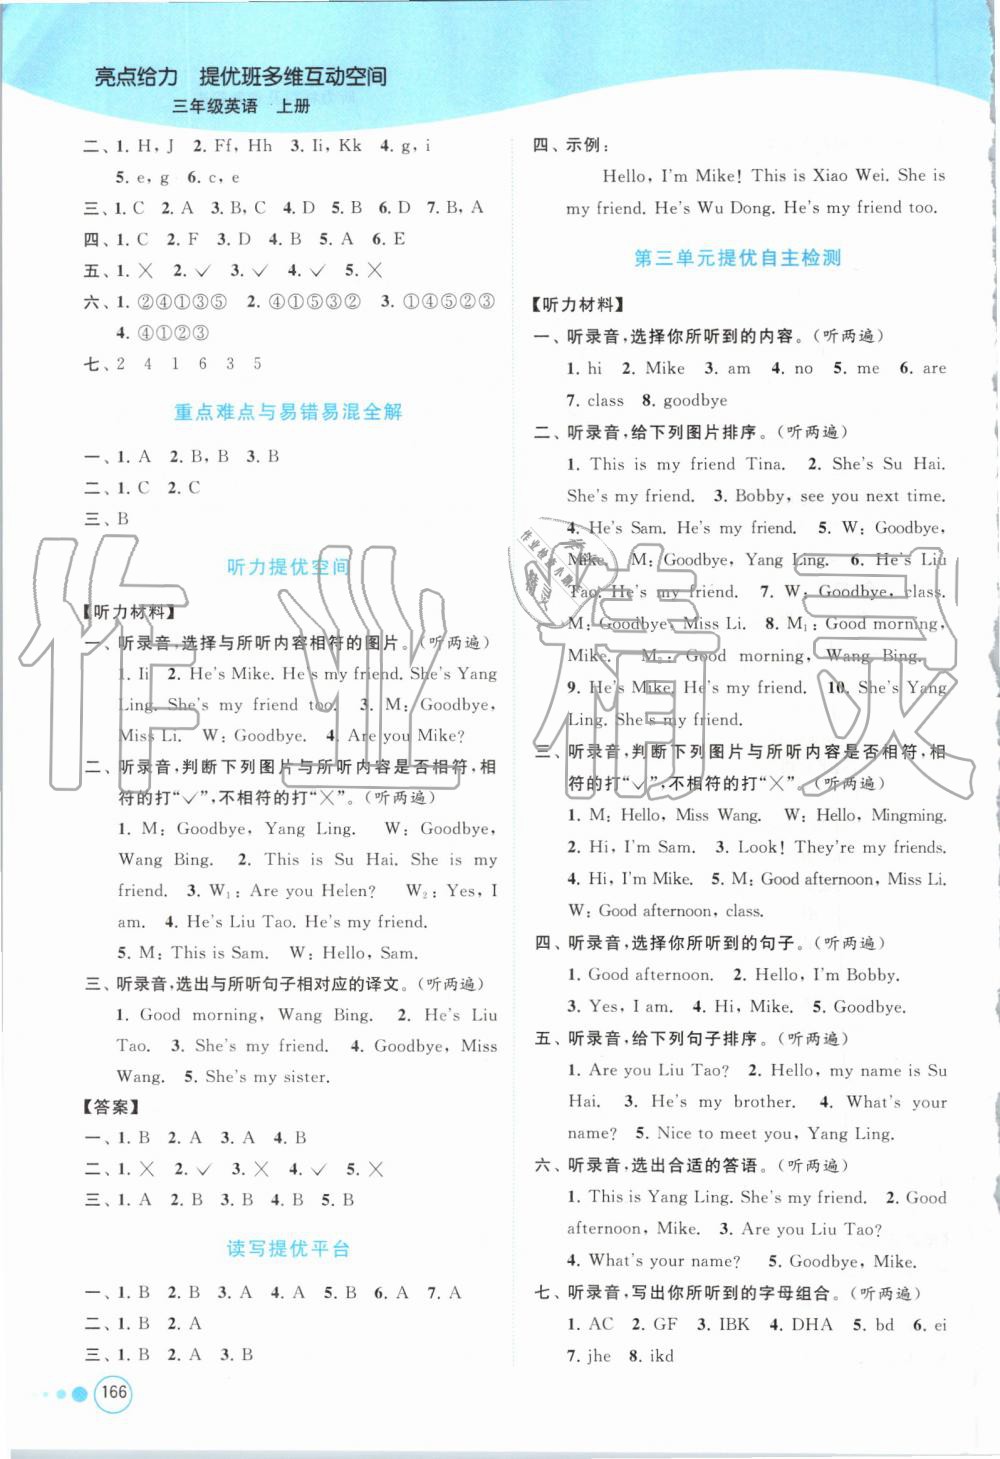 亮点给力 提优班多维互动空间
三年级英语 · 上册
二、1. H, J 2. Ff, Hh 3. Ii, Kk 4. g, i
5. e, g 6. c, e
三、1. C 2. A 3. B, C 4. D 5. B 6. D 7. B, A
四、1. C 2. F 3. D 4. B 5. A 6. E
五、1. × 2. ✓ 3. ✓ 4. ✓ 5. ×
六、1. ②④①③⑤ 2. ④①⑤③② 3. ④①⑤②③
4. ④①②③
七、2 4 1 6 3 5
重点难点与易错易混全解
一、1. A 2. B, B 3. B
二、1. C 2. C
三、B
听力提优空间
【听力材料】
一、听录音,选择与所听内容相符的图片。(听两遍)
1. Ii 2. He's Mike. He's my friend. She's Yang
Ling. She's my friend too. 3. M: Goodbye,
Miss Li. W: Goodbye. 4. Are you Mike?
二、听录音,判断下列图片与所听内容是否相符,相
符的打“✓”,不相符的打“×”。(听两遍)
1. M: Goodbye, Yang Ling. W: Goodbye,
Wang Bing. 2. This is Su Hai. She is my
friend. 3. W₁: Are you Helen? W₂: Yes, I
am. 4. He's Liu Tao. He's my friend.
5. M: This is Sam. W: Hello, Sam.
三、听录音,选出与所听句子相对应的译文。(听两遍)
1. Good morning, Wang Bing. 2. He's Liu
Tao. 3. She's my friend. 4. Goodbye, Miss
Wang. 5. She's my sister.
【答案】
一、1. B 2. A 3. A 4. B
二、1. × 2. ✓ 3. ✓ 4. ✓ 5. ×
三、1. A 2. B 3. B 4. B 5. B
读写提优平台
一、1. B 2. B 3. A 4. A 5. B 6. A 7. A
二、1. B 2. A
三、1. B 2. A 3. B
166
四、示例:
Hello, I'm Mike! This is Xiao Wei. She is
my friend. He's Wu Dong. He's my friend too.
第三单元提优自主检测
【听力材料】
一、听录音,选择你所听到的内容。(听两遍)
1. hi 2. Mike 3. am 4. no 5. me 6. are
7. class 8. goodbye
二、听录音,给下列图片排序。(听两遍)
1. This is my friend Tina. 2. She's Su Hai.
She's my friend. 3. Bobby, see you next time.
4. He's Sam. He's my friend. 5. W: Goodbye,
Mike. M: Goodbye, Yang Ling. 6. He's Liu
Tao. He's my friend. 7. W: Goodbye, class.
M: Goodbye, Miss Li. 8. M₁: Good morning,
Mike. M₂: Good morning, Wang Bing.
9. He's Mike. He's my friend. 10. She's Yang
Ling. She's my friend.
三、听录音,判断下列图片与所听内容是否相符,相
符的打“✓”,不相符的打“×”。(听两遍)
1. M: Hello, Miss Wang. W: Hello, Mingming.
2. Hi, I'm Sam. 3. Look! They're my friends.
4. Hi, I'm Mike. 5. M: Good afternoon, Miss Li.
W: Good afternoon, class.
四、听录音,选择你所听到的句子。(听两遍)
1. Good afternoon. 2. Hello, I'm Bobby.
3. Yes, I am. 4. Hi, Mike. 5. Goodbye.
五、听录音,给下列句子排序。(听两遍)
1. Are you Liu Tao? 2. Hello, my name is Su
Hai. 3. He's my brother. 4. What's your
name? 5. Nice to meet you, Yang Ling.
六、听录音,选出合适的答语。(听两遍)
1. This is Yang Ling. She's my friend. 2. Good
afternoon, Mike. 3. Are you Liu Tao?
4. What's your name? 5. Goodbye, Mike.
七、听录音,写出你所听到的字母组合。(听两遍)
1. AC 2. GF 3. IBK 4. DHA 5. bd 6. ei
7. jhe 8. ikd
作业精灵